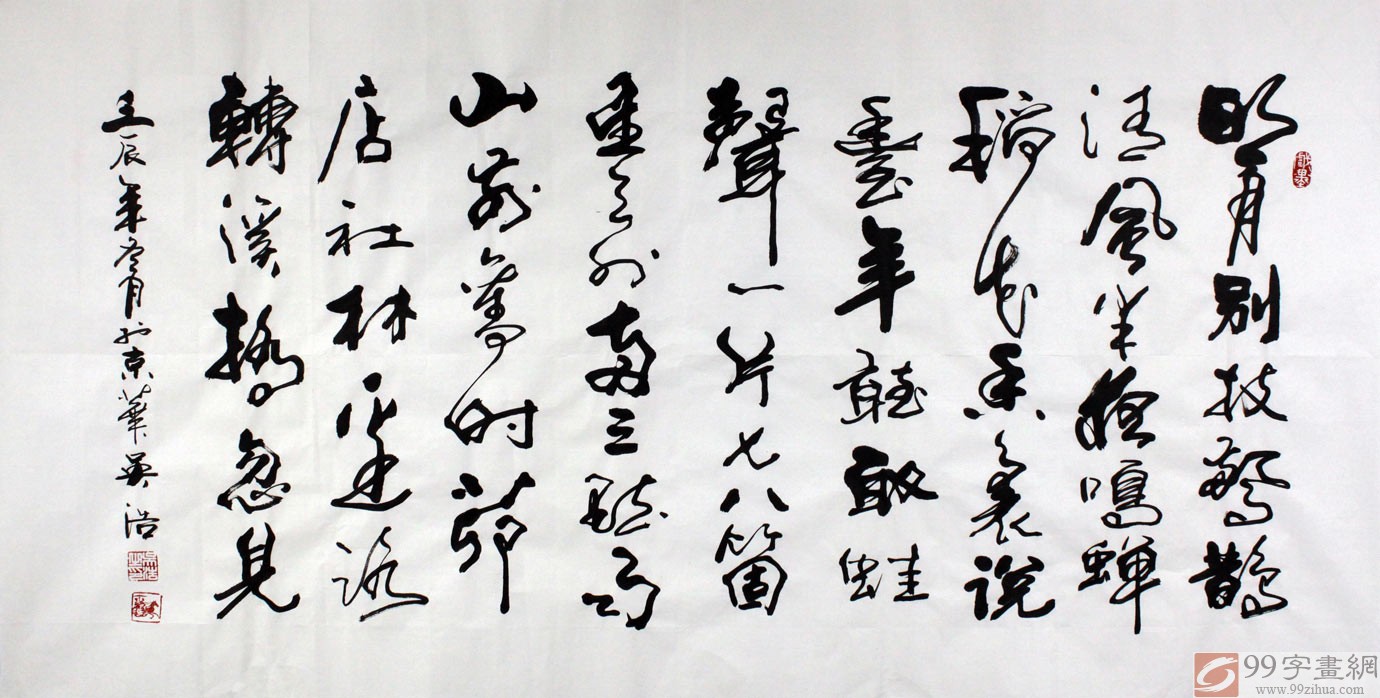 明月别枝驚鵲
清風半夜鳴蟬
稻花香裏說
豐年聽取蛙
聲一片七八箇
星天外兩三點雨
山前舊時茆
店社林邊路
轉溪橋忽見
壬辰年冬月於京華吴浩
99字畫網
www.99zihua.com